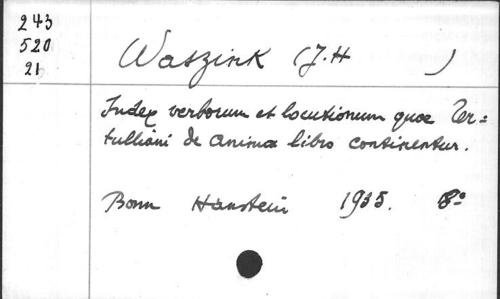 243
520
21
Waszink (J.H )
Index verborum et locutionum quae Ter=
tulliani de Anima libro continentur.
Bonn Hanstein 1935. 8°